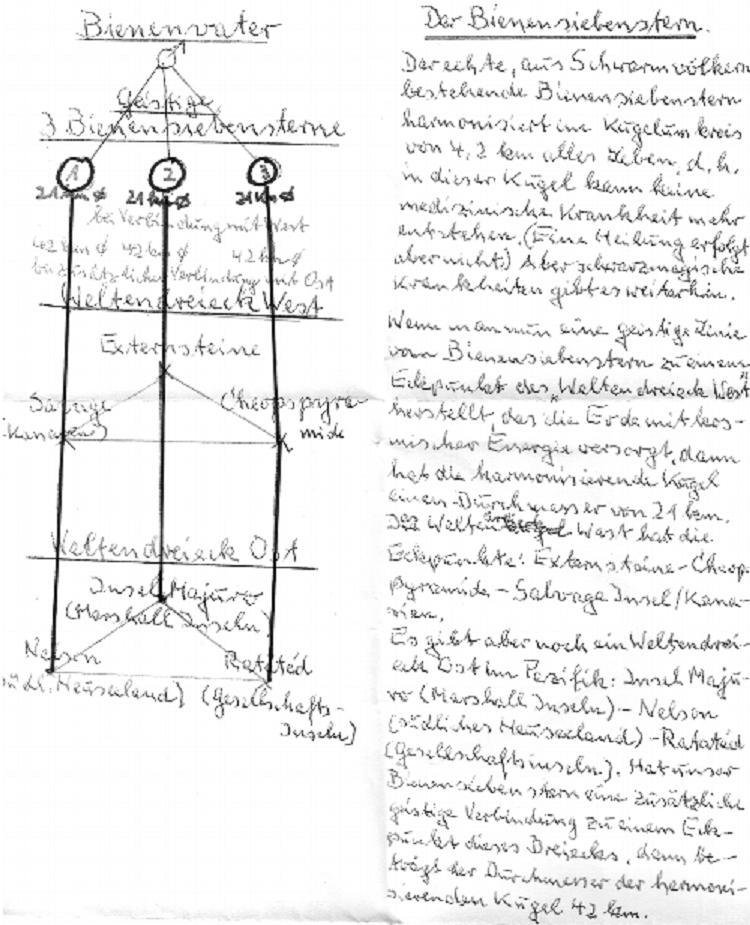 Bienenvater
Geistige
3 Bienensiebensterne
1 2 3
21 km Ø 21 km Ø 21 km Ø
bei Verbindung mit West
42 km Ø 42 km Ø 42 km Ø
bei zusätzlicher Verbindung mit Ost
Weltendreieck West
Externsteine
Salvage Cheopspyra-
(Kanaren) mide
Weltendreieck Ost
Insel Majuro
(Marshall Inseln)
Nelson Rataéd
südl. Neuseeland) (Gesellschafts-
Inseln)
Der Bienensiebenstern.
Der echte, aus Schwarmvölkern
bestehende Bienensiebenstern
harmonisiert im Kugelumkreis
von 4,2 km alles Leben, d.h.
in dieser Kugel kann keine
medizinische Krankheit mehr
entstehen. (Eine Heilung erfolgt
aber nicht) Aber schwarzmagische
Krankheiten gibt es weiterhin.
Wenn man nun eine geistige Linie
vom Bienensiebenstern zu einem
Eckpunkt des „Weltendreieck West"
herstellt, das die Erde mit kos-
mischer Energie versorgt, dann
hat die harmonisierende Kugel
einen Durchmesser von 21 km.
Das Welten West hat die
Eckpunkte: Externsteine - Cheops
pyramide - Salvage Insel/Kana-
rien.
Es gibt aber noch ein Weltendrei-
eck Ost im Pazifik: Insel Maju-
ro (Marshall Inseln) - Nelson
(südliches Neuseeland) - Ratatéd
(Gesellschaftsinseln). Hat unser
Bienensiebenstern eine zusätzliche
geistige Verbindung zu einem Eck-
punkt dieses Dreiecks, dann be-
trägt der Durchmesser der harmoni-
sierenden Kugel 42 km.